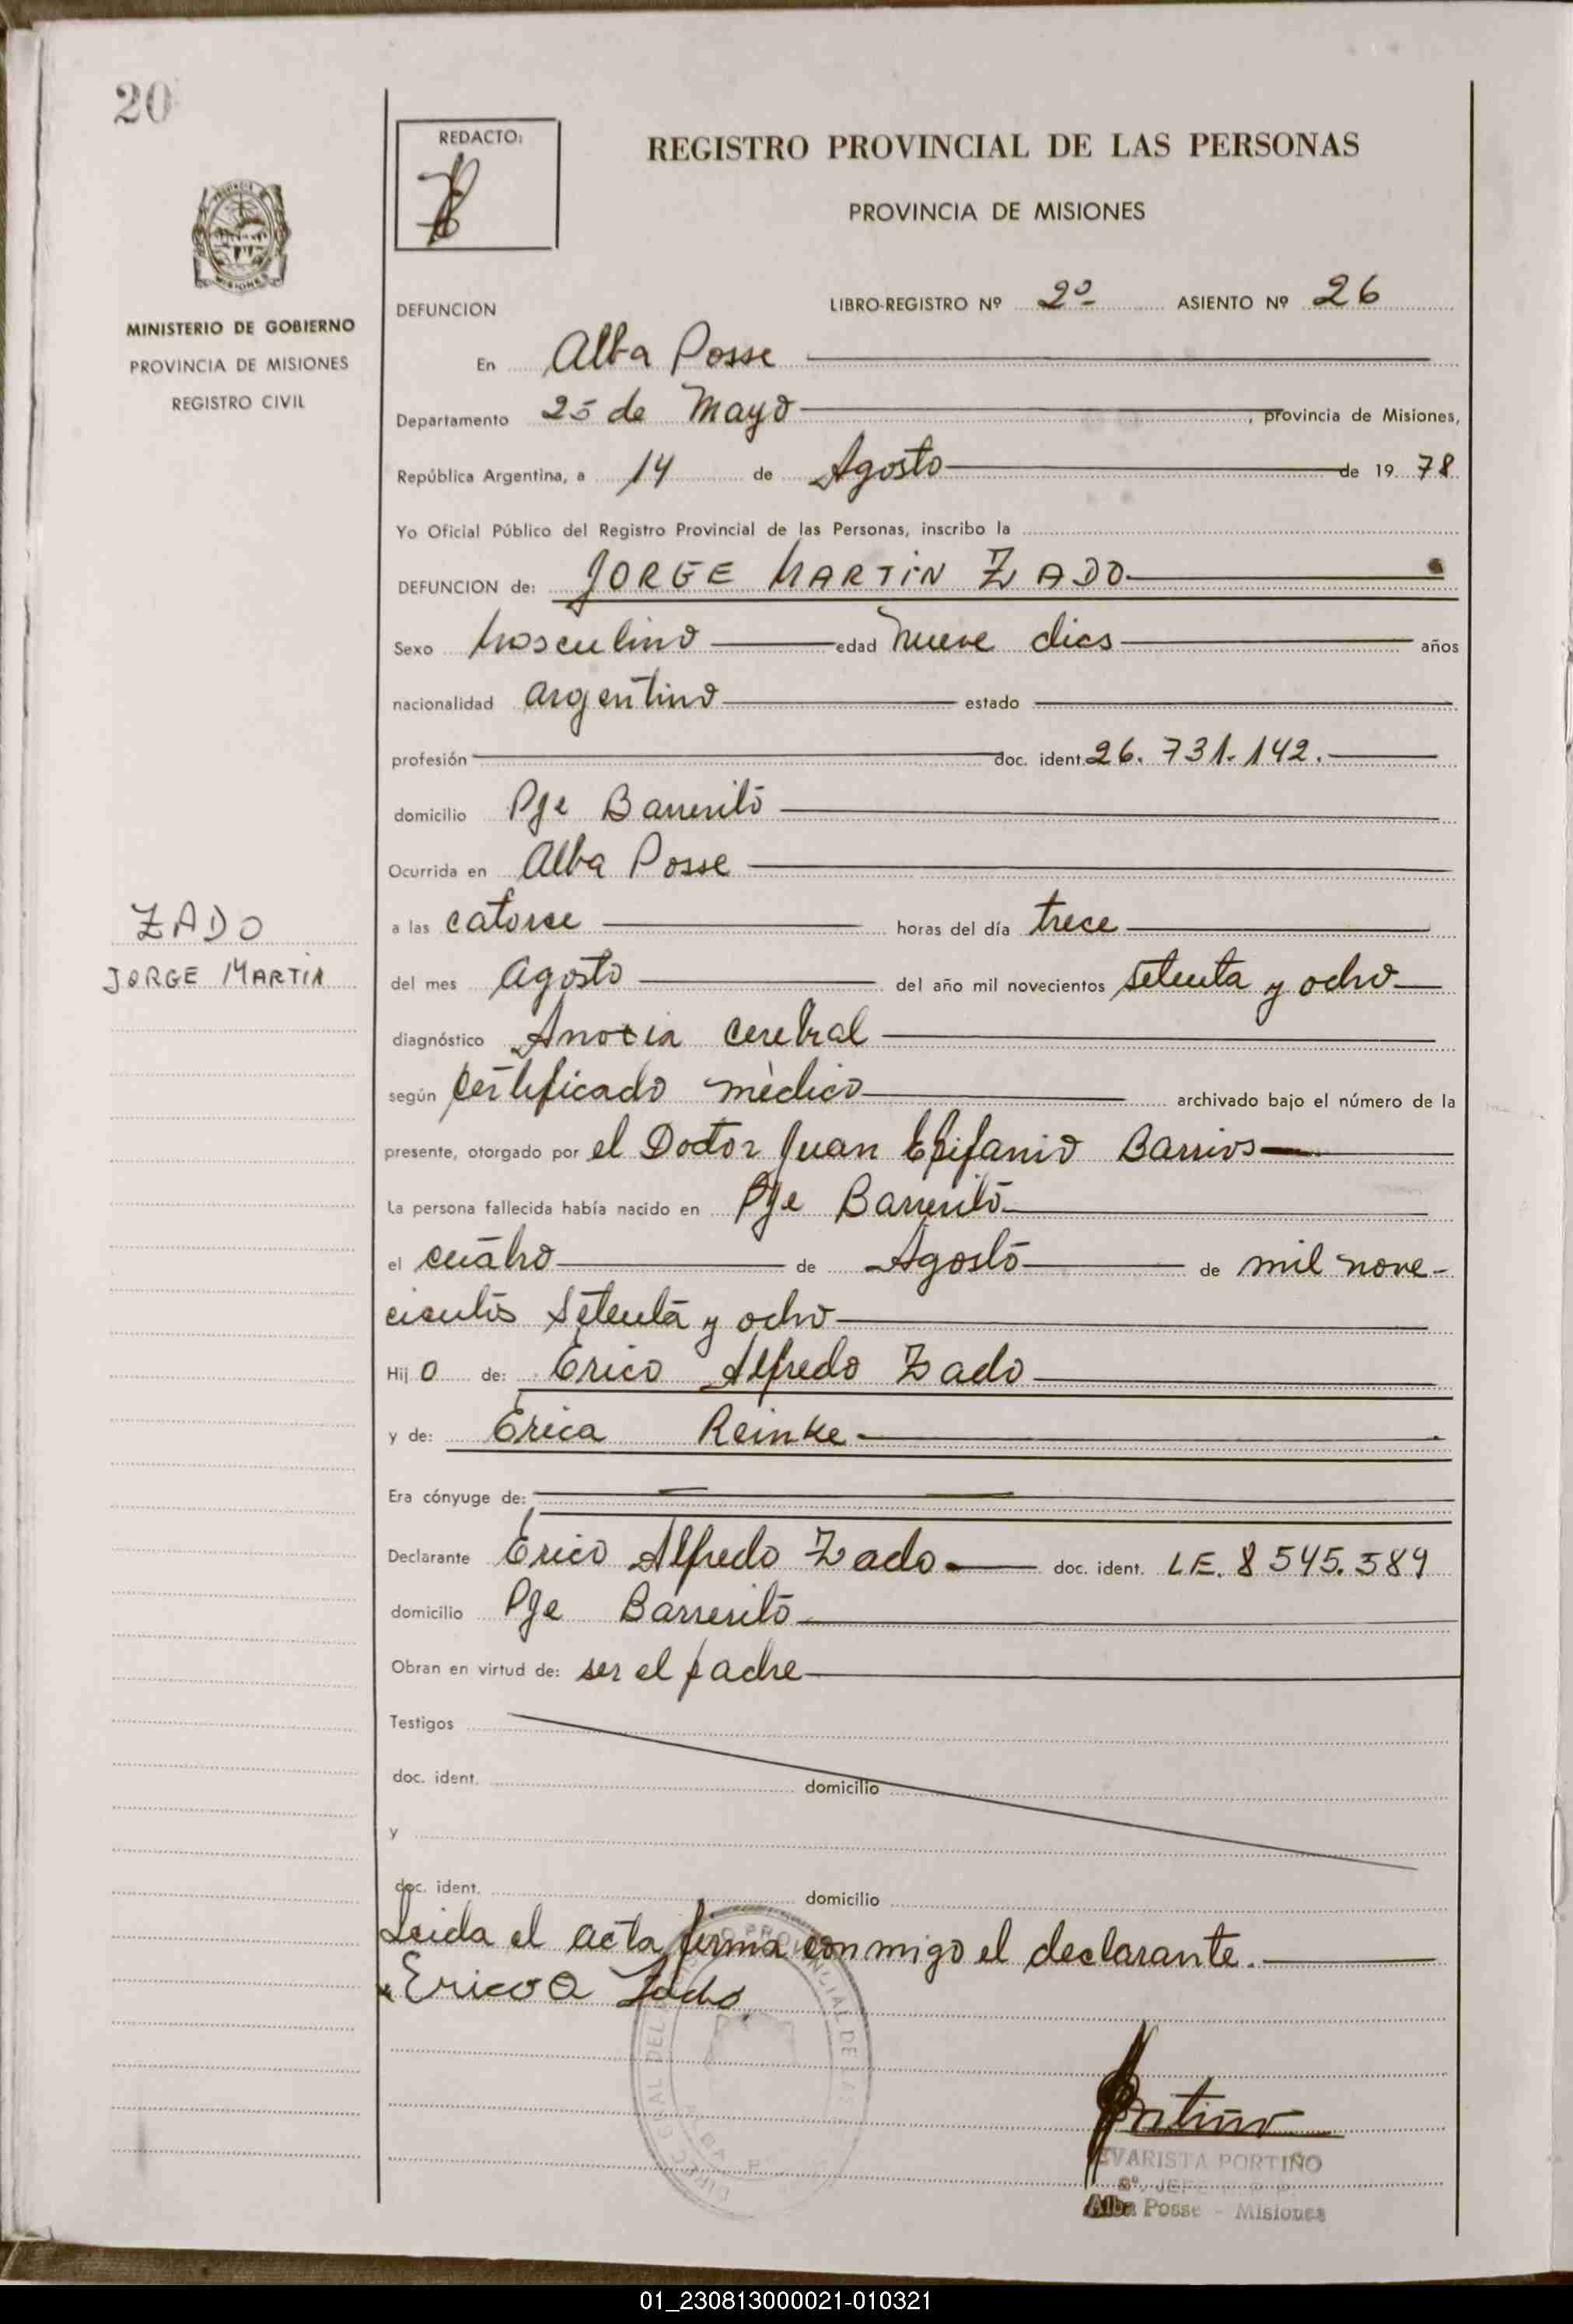 20
REDACTO:
REGISTRO PROVINCIAL DE LAS PERSONAS
PROVINCIA DE MISIONES
MINISTERIO DE GOBIERNO
PROVINCIA DE MISIONES
REGISTRO CIVIL
DEFUNCION LIBRO-REGISTRO Nº 2º ASIENTO Nº 26
En Alba Posse
Departamento 25 de Mayo, provincia de Misiones,
República Argentina, a 14 de Agosto de 19 78
Yo Oficial Público del Registro Provincial de las Personas, inscribo la
DEFUNCION de: JORGE MARTIN ZADO
Sexo Masculino edad Nueve dias años
nacionalidad argentino estado
profesión doc. ident. 26.731.142.
domicilio Pje Barrerito
Ocurrida en Alba Posse
ZADO
JORGE MARTIN
a las catorce horas del día trece
del mes agosto del año mil novecientos setenta y ocho
diagnóstico Anoxia cerebral
según Certificado mèdico archivado bajo el número de la
presente, otorgado por el Doctor Juan Epifanio Barrios
La persona fallecida había nacido en Pje Barrerito
el cuatro de Agosto de mil nove-
cientos setenta y ocho
Hijo de: Erico Alfredo Zado
y de: Erica Reinke
Era cónyuge de:
Declarante Erico Alfredo Zado doc. ident. LE. 8 545.589
domicilio Pje Barrerito
Obran en virtud de: ser el padre
Testigos
doc. ident. domicilio
y
doc. ident. domicilio
Leida el acta firma conmigo el declarante.
Erico A Zado
Portiño
EVARISTA PORTIÑO
JEFE
Alba Posse - Misiones
01_230813000021-010321